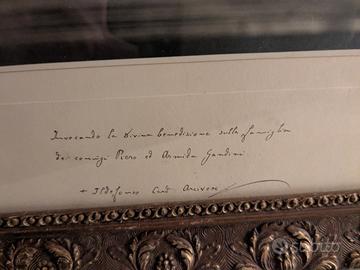 Invocando la divina benedizione sulla famiglia
dei coniugi Piero ed Armida Gandini
+ Ildefonso Card Arcives
subito